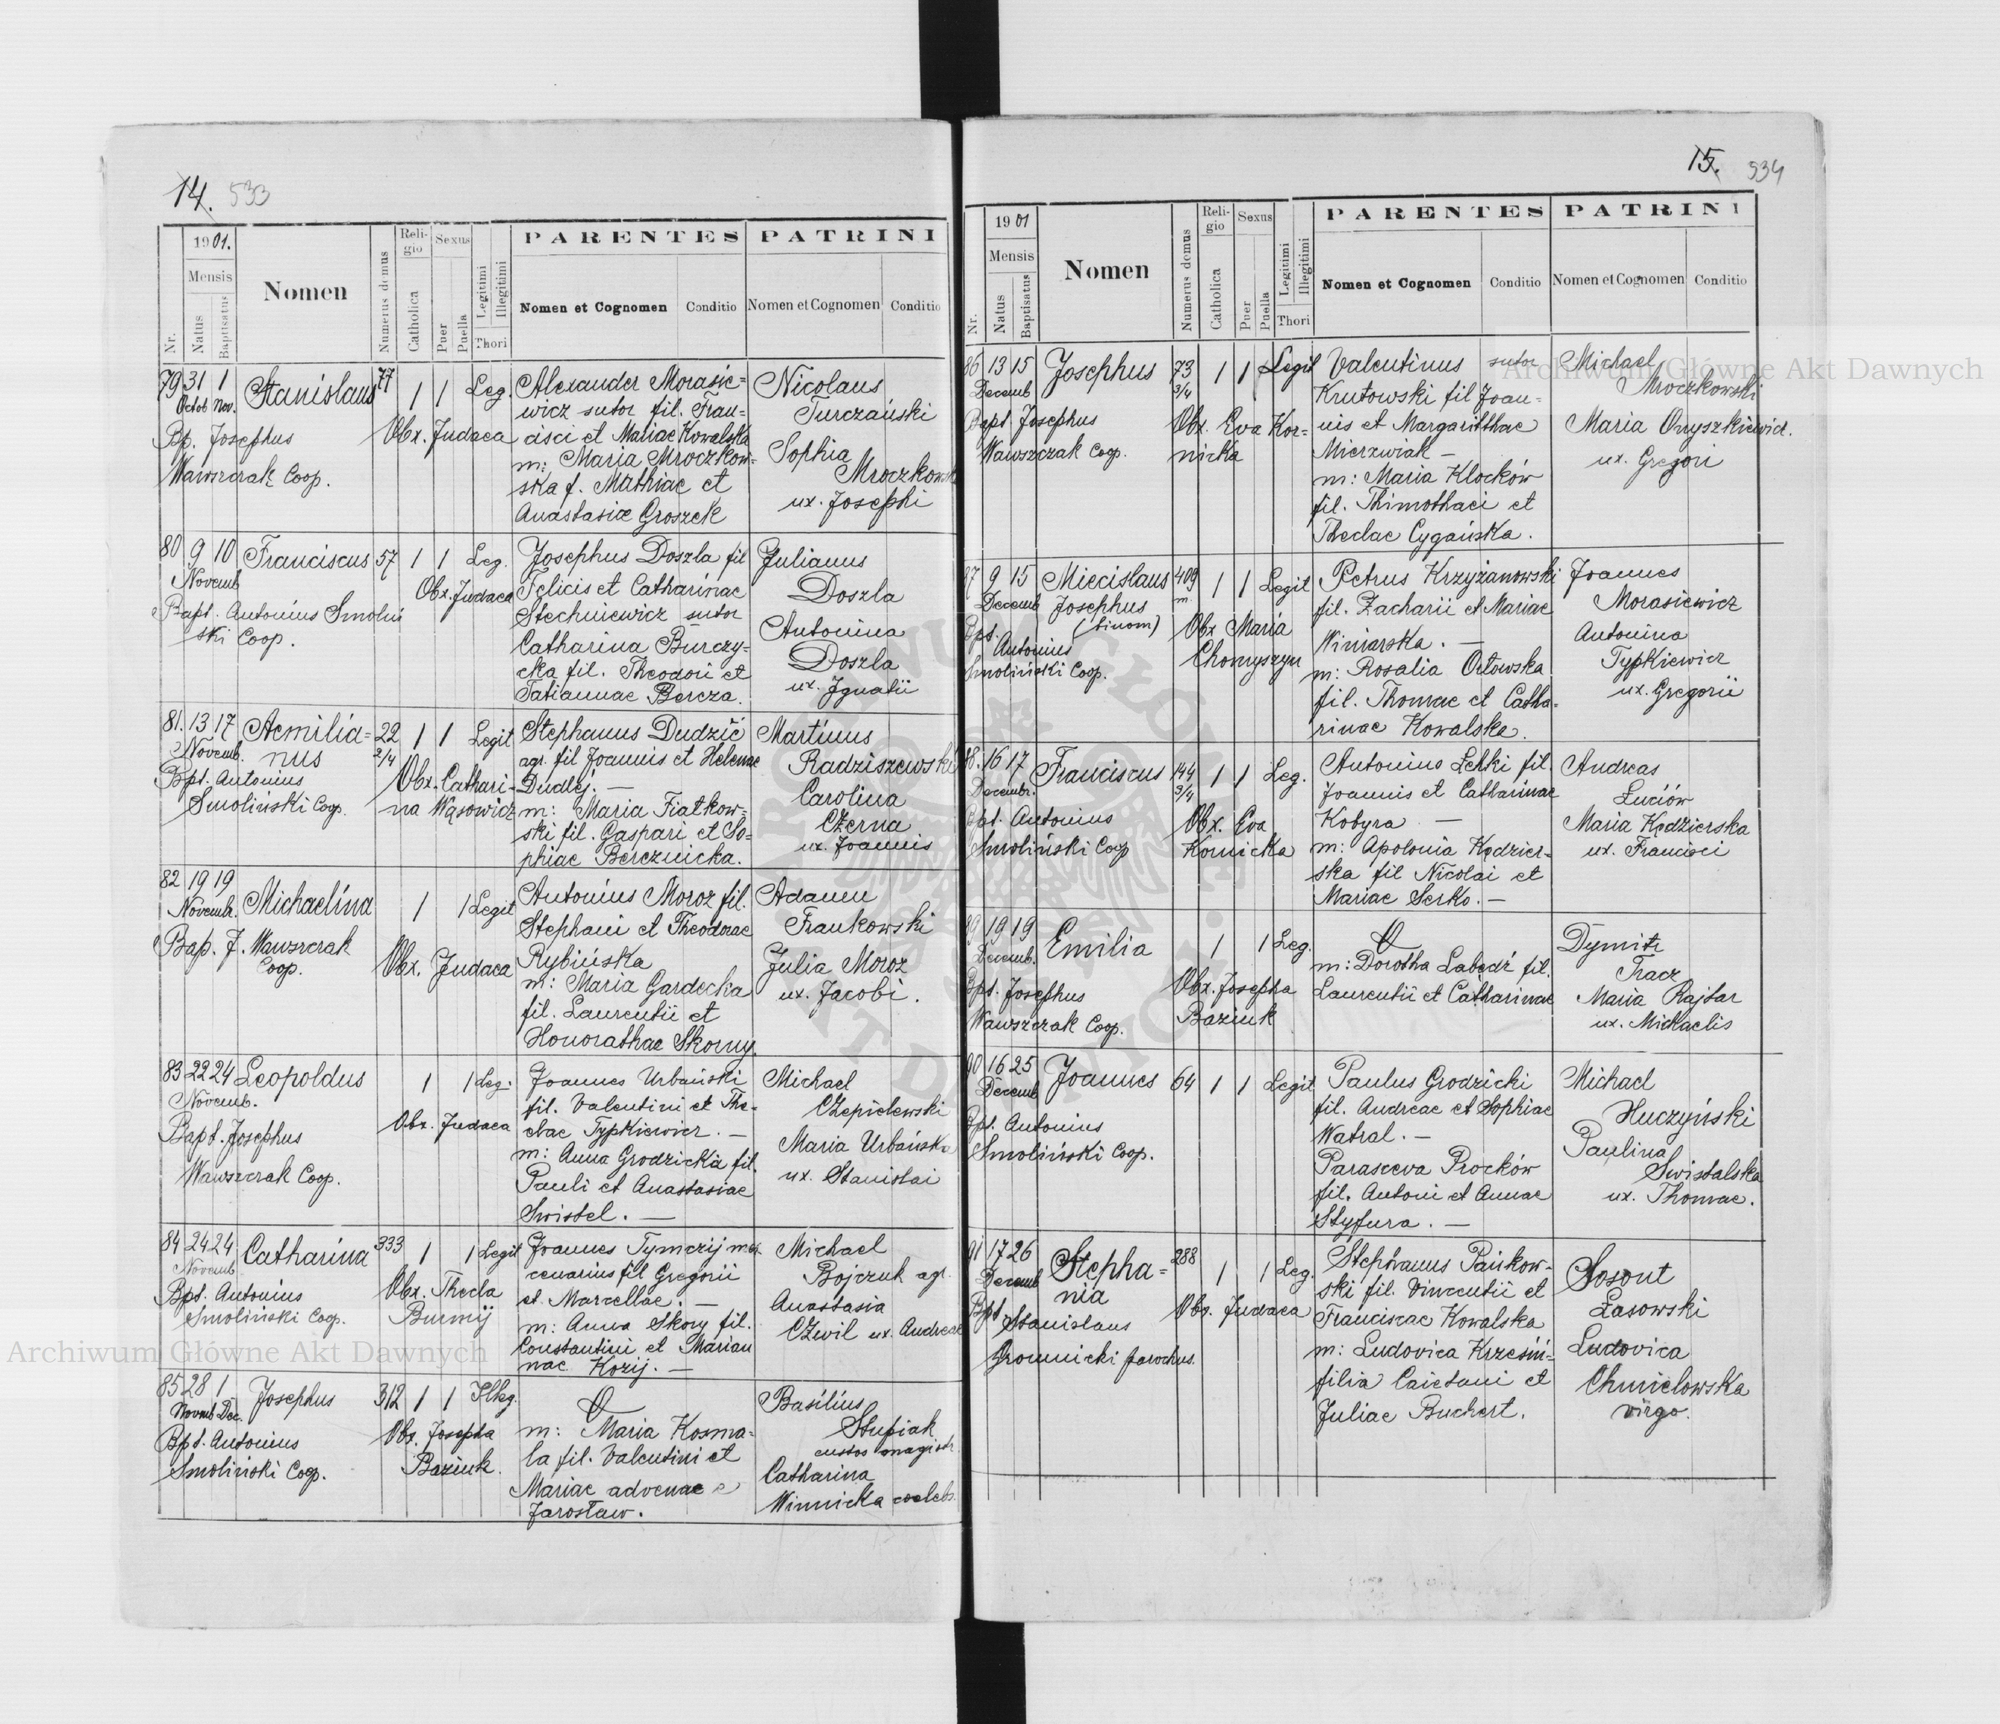 14. 533
1901.
Mensis
Nr.
Natus
Baptisatus
Nomen
Numerus domus
Religio
Catholica
Sexus
Puer
Puella
Legitimi
Illegitimi
Thori
PARENTES
Nomen et Cognomen
Conditio
PATRINI
Nomen et Cognomen
Conditio
79 31 1 Stanislaus 77 1 1 Leg.
Octob Nov.
Bp. Josephus
Wawszczak Coop.
Obx. Judaea
Alexander Morasie=
wicz sutor fil. Fran=
cisci et Mariae Kowalska
m: Maria Mroczkow=
ska f. Mathiae et
Anastasiae Groszek
Nicolaus
Turczański
Sophia
Mroczkowska
ux. Josephi
80 9 10 Franciscus 57 1 1 Leg.
Novemb
Bapt. Antonius Smoliń
ski Coop.
Obx. Judaea
Josephus Doszla fil
Felicis et Catharinae
Stechniewicz sutor
Catharina Burczy-
cka fil. Theodori et
Tatiannae Bercza.
Julianus
Doszla
Antonina
Doszla
ux. Ignatii
81. 13 17 Aemilia= 22 1 1 Legit
Novemb. nus 2/4
Bpt. Antonius
Smoliński Coop.
Obx. Cathari-
na Wąsowicz
Stephanus Dudzić
agr. fil Joannis et Helenae
Dudlej. —
m: Maria Fiałkow=
ski fil. Gaspari et So=
phiae Bercznicka.
Martinus
Radziszewski
Carolina
Czerna
ux. Joannis
82 19 19 Michaelina 1 1 Legit
Novemb.
Bap. J. Wawszczak
Coop.
Obx. Judaea
Antonius Moroz fil.
Stephani et Theodorae
Rybińska
m: Maria Gardecka
fil. Laurentii et
Honorathae Skorny.
Adamu
Frankowski
Julia Moroz
ux. Jacobi.
83 22 24 Leopoldus 1 1 Leg.
Novemb.
Bapt. Josephus
Wawszczak Coop.
Obx. Judaea
Joannes Urbański
fil. Valentini et The-
clae Typkiewicz. —
m: Anna Grodzicka fil.
Pauli et Anastasiae
Swistel. —
Michael
Czepielewski
Maria Urbańska
ux. Stanislai
84 24 24 Catharina 333 1 1 Legit
Novemb
Bpt. Antonius
Smoliński Coop.
Obx. Thecla
Burmij
Joannes Tymczij mer
cenarius fil Gregorii
et Marcellae. —
m: Anna Skory fil.
Constantini et Marian
nae Kozij. —
Michael
Bojczuk agr.
Anastasia
Czwil ux. Andreae
85 28 1 Josephus 312 1 1 Illeg.
Novemb Dec.
Bpt. Antonius
Smoliński Coop.
Obx. Josepha
Baziuk.
m: Maria Kosma-
la fil. Valentini et
Mariae advenae e
Jarosław.
Basilius
Stupiak
custos magistr.
Catharina
Winnicka coelebs.
15. 534
1901
Mensis
Nr.
Natus
Baptisatus
Nomen
Numerus domus
Religio
Catholica
Sexus
Puer
Puella
Legitimi
Illegitimi
Thori
PARENTES
Nomen et Cognomen
Conditio
PATRINI
Nomen et Cognomen
Conditio
86 13 15 Josephus 73 1 1 Legit
Decemb 3/4
Bapt. Josephus
Wawszczak Coop.
Obx. Eva Kor=
nicka
Valentinus sutor
Krutowski fil Joan=
nis et Margaritthae
Mierzwiak —
m: Maria Klocków
fil. Thimothaei et
Theclae Cygańska.
Michael
Mroczkowski
Maria Onyszkiewicz.
ux. Gregori
87 9 15 Miecislaus 409 1 1 Legit
Decemb Josephus m.
(binom)
Bpt. Antonius
Smoliński Coop.
Obx Maria
Chomyszyn
Petrus Krzyżanowski
fil. Zacharii et Mariae
Winiarska. —
m: Rosalia Orłowska
fil. Thomae et Catha-
rinae Kowalska.
Joannes
Morasiewicz
Antonina
Typkiewicz
ux. Gregorii
88. 16 17 Franciscus 144 1 1 Leg.
Decembr. 3/4
Bpt. Antonius
Smoliński Coop
Obx. Eva
Kornicka
Antonius Letki fil.
Joannis et Catharinae
Kobyra —
m: Apolonia Kędzier-
ska fil Nicolai et
Mariae Serko. —
Andreas
Luciów
Maria Kędzierska
ux. Francisci
89 19 19 Emilia 1 1 Leg.
Decemb.
Bpt. Josephus
Wawszczak Coop.
Obx. Josepha
Baziuk
m: Dorotha Łabędź fil.
Laurentii et Catharinae
Dymitr
Tracz
Maria Rajtar
ux. Michaelis
90 16 25 Joannes 64 1 1 Legit
Decemb
Bpt. Antonius
Smoliński Coop.
Paulus Grodzicki
fil. Andreae et Sophiae
Watral. —
Parasceva Procków
fil. Antoni et Annae
Styfura. —
Michael
Huczyński
Paulina
Swistalska
ux. Thomae.
91 17 26 Stepha= 288 1 1 Leg.
Decemb nia
Bpt. Stanislaus
Gromnicki parochus.
Obx. Judaea
Stephanus Pańkow-
ski fil. Vincentii et
Franciscae Kowalska
m: Ludovica Krzesiń=
filia Caietani et
Juliae Buchert.
Sosont
Łasowski
Ludovica
Chmielowska
virgo.
Archiwum Główne Akt Dawnych
Archiwum Główne Akt Dawnych